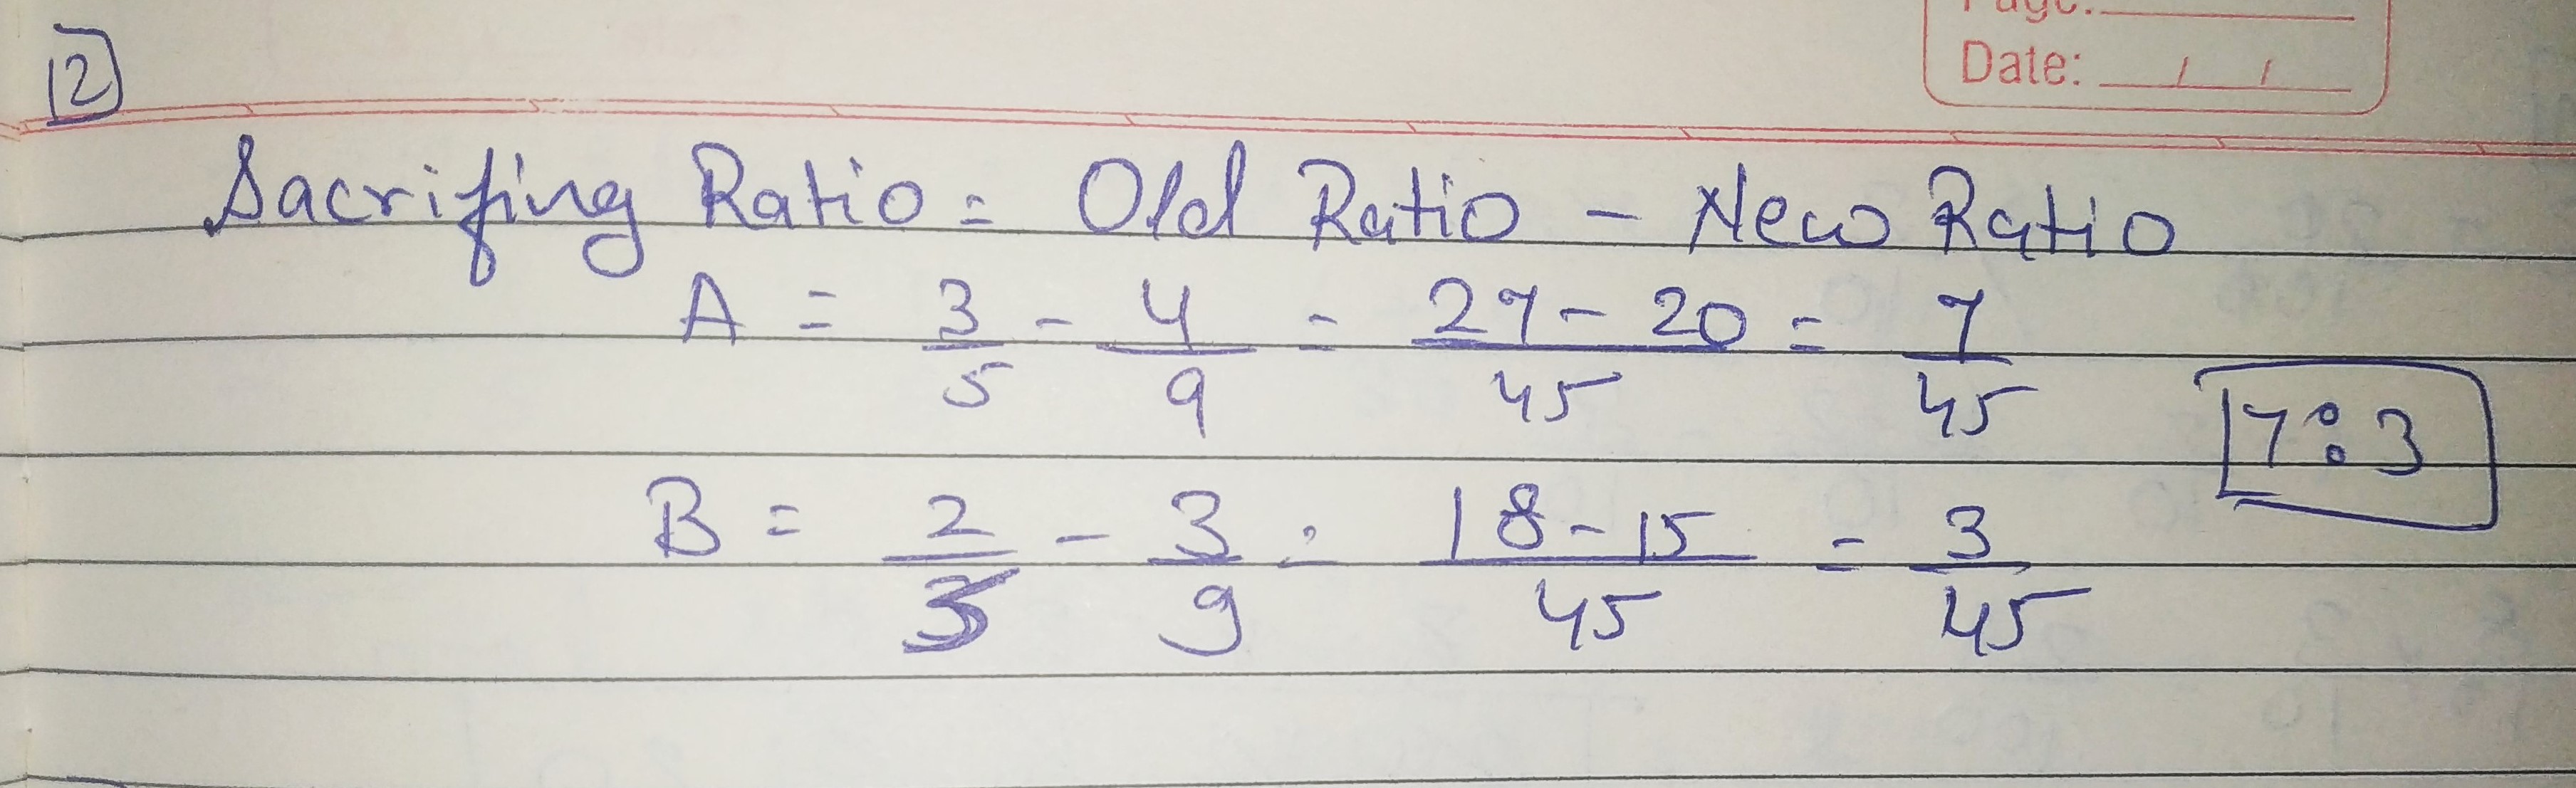 Page:
Date: / /
12
Sacrifing Ratio = Old Ratio - New Ratio
A = 3/5 - 4/9 = 27 - 20/45 = 7/45
7:3
B = 2/5 - 3/9 = 18 - 15/45 = 3/45